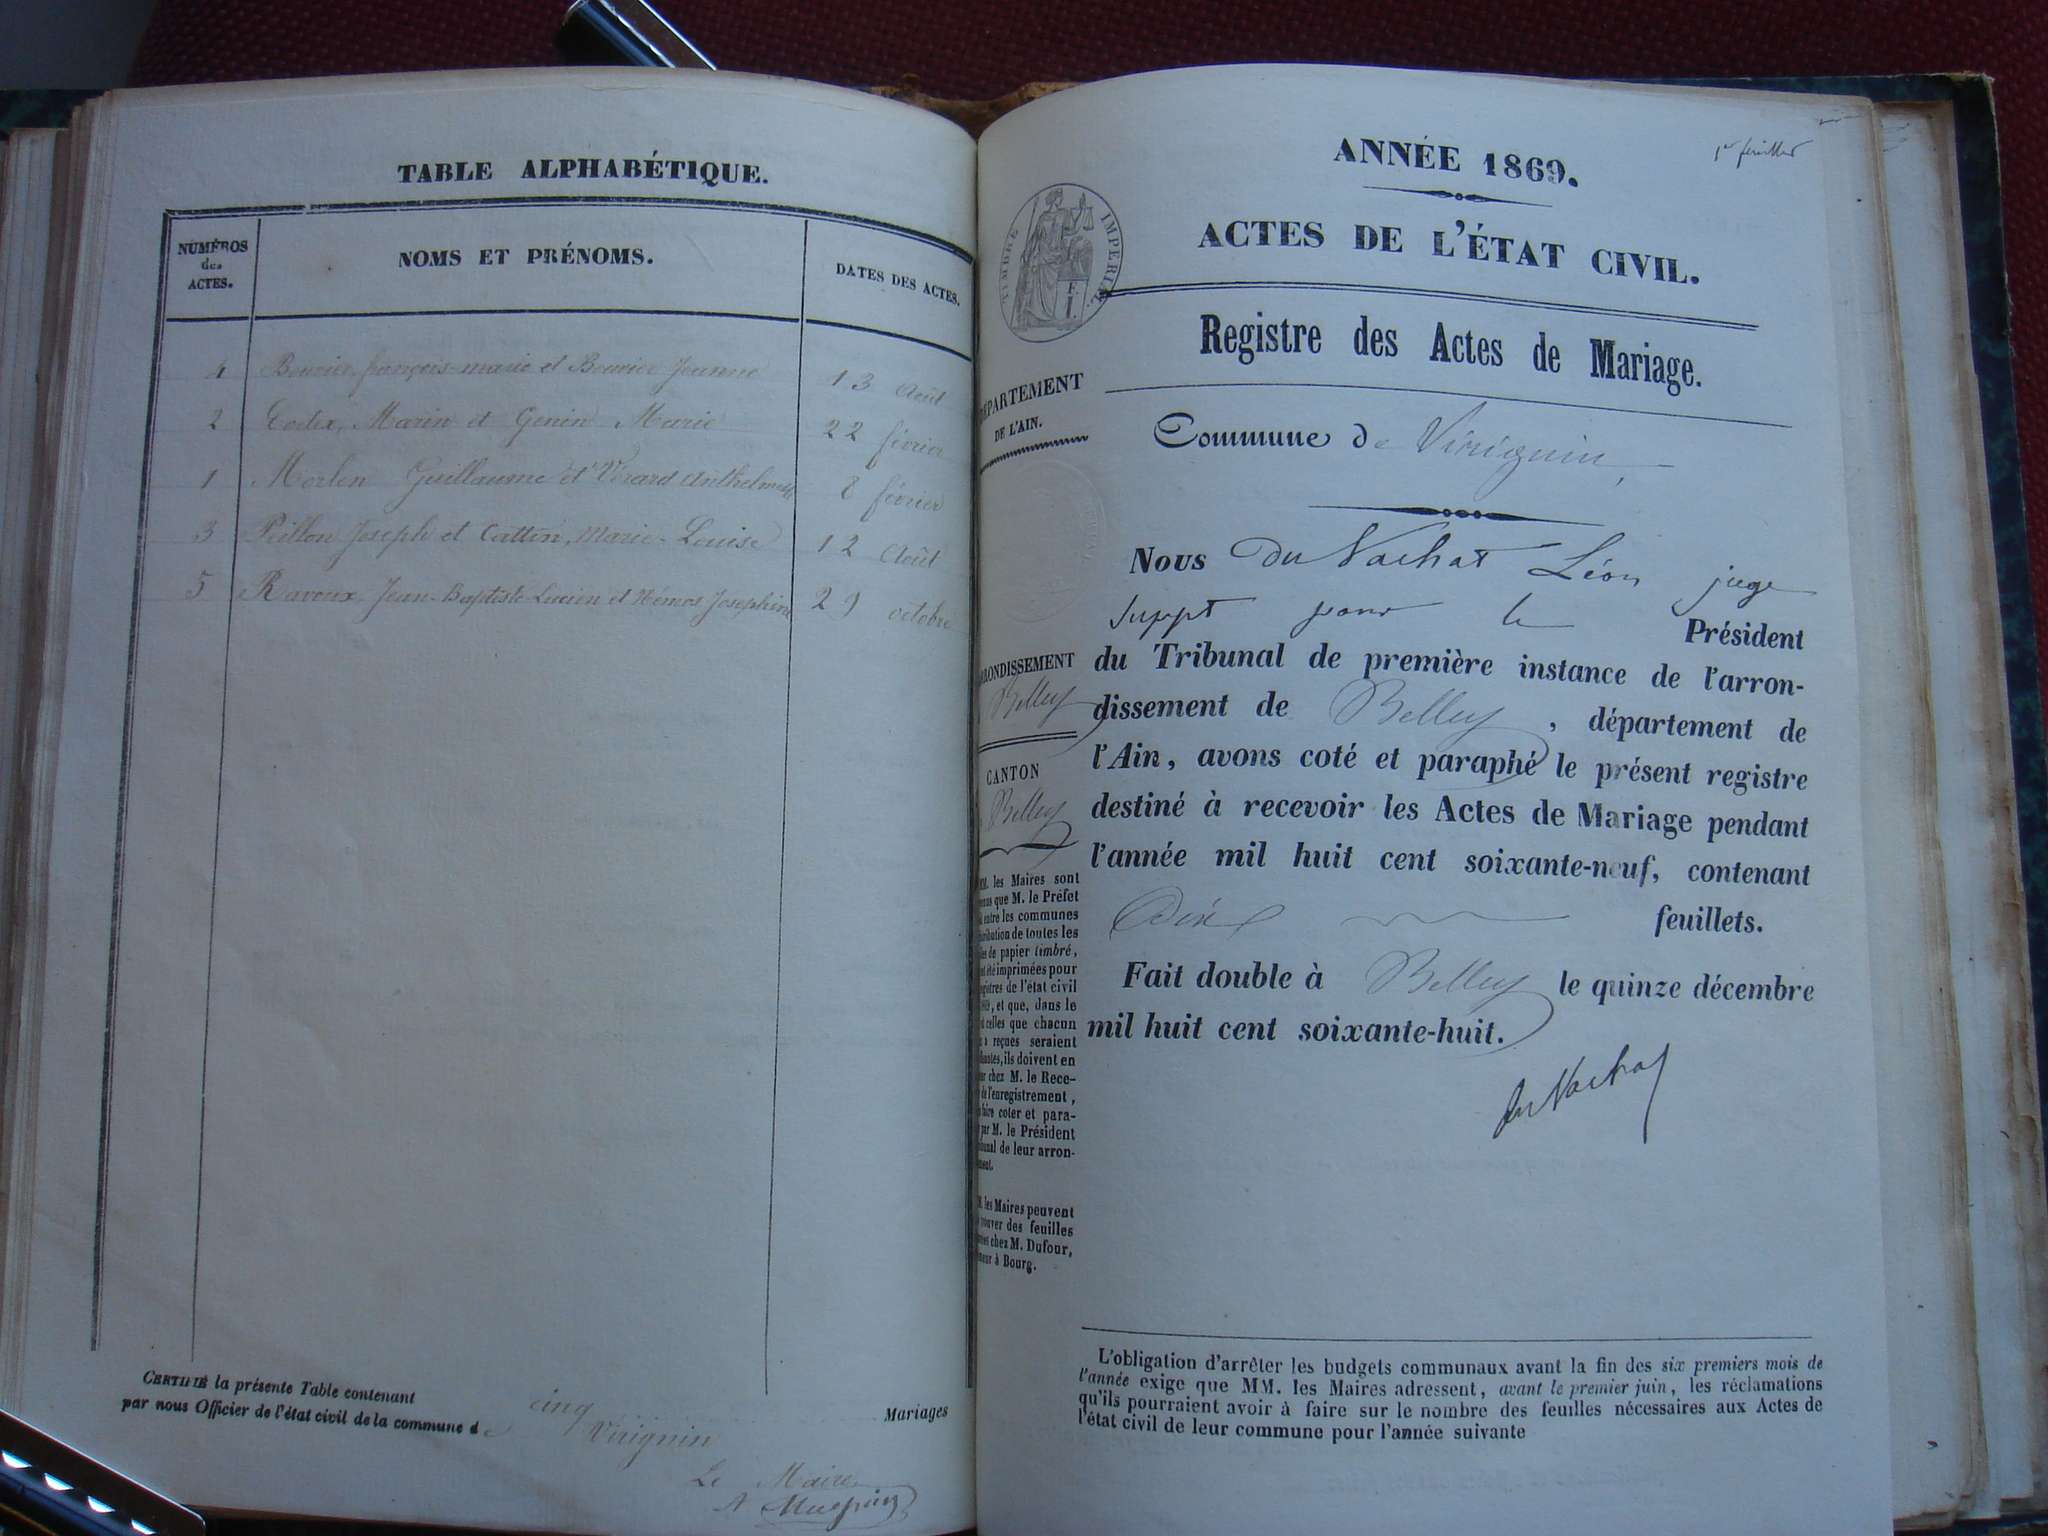 TABLE ALPHABÉTIQUE.
NUMÉROS
des
ACTES.
NOMS ET PRÉNOMS.
DATES DES ACTES.
4 Bouvier, françois-marie et Bouvier Jeanne 13 Août
2 Marin et Genin Marie 22 février
1 Guillaume et Virard 8 février
3 Peillon Joseph et Cattin, Marie-Louise 12 Août
5 Ravoux, Jean-Baptiste Lucien et Josephine 29 octobre
CERTIFIÉ la présente Table contenant cinq Mariages
par nous Officier de l'état civil de la commune de Virignin
Le Maire
1er feuillet
ANNÉE 1869.
ACTES DE L'ÉTAT CIVIL.
TIMBRE IMPERIAL.
Registre des Actes de Mariage.
DÉPARTEMENT
DE L'AIN.
Commune de Virignin
Nous Du Vachat Léon juge
suppt pour le Président
du Tribunal de première instance de l'arron-
dissement de Belley, département de
l'Ain, avons coté et paraphé le présent registre
destiné à recevoir les Actes de Mariage pendant
l'année mil huit cent soixante-neuf, contenant
Dix feuillets.
Fait double à Belley le quinze décembre
mil huit cent soixante-huit.
Du Vachat
ARRONDISSEMENT
Belley
CANTON
Belley
MM. les Maires sont
que M. le Préfet
entre les communes
de toutes les
de papier timbré,
été imprimées pour
de l'état civil
, et que, dans le
celles que chacun
reçues seraient
, ils doivent en
chez M. le Rece-
de l'enregistrement,
faire coter et para-
par M. le Président
de leur arron-
les Maires peuvent
trouver des feuilles
chez M. Dufour,
à Bourg.
L'obligation d'arrêter les budgets communaux avant la fin des six premiers mois de
l'année exige que MM. les Maires adressent, avant le premier juin, les réclamations
qu'ils pourraient avoir à faire sur le nombre des feuilles nécessaires aux Actes de
l'état civil de leur commune pour l'année suivante